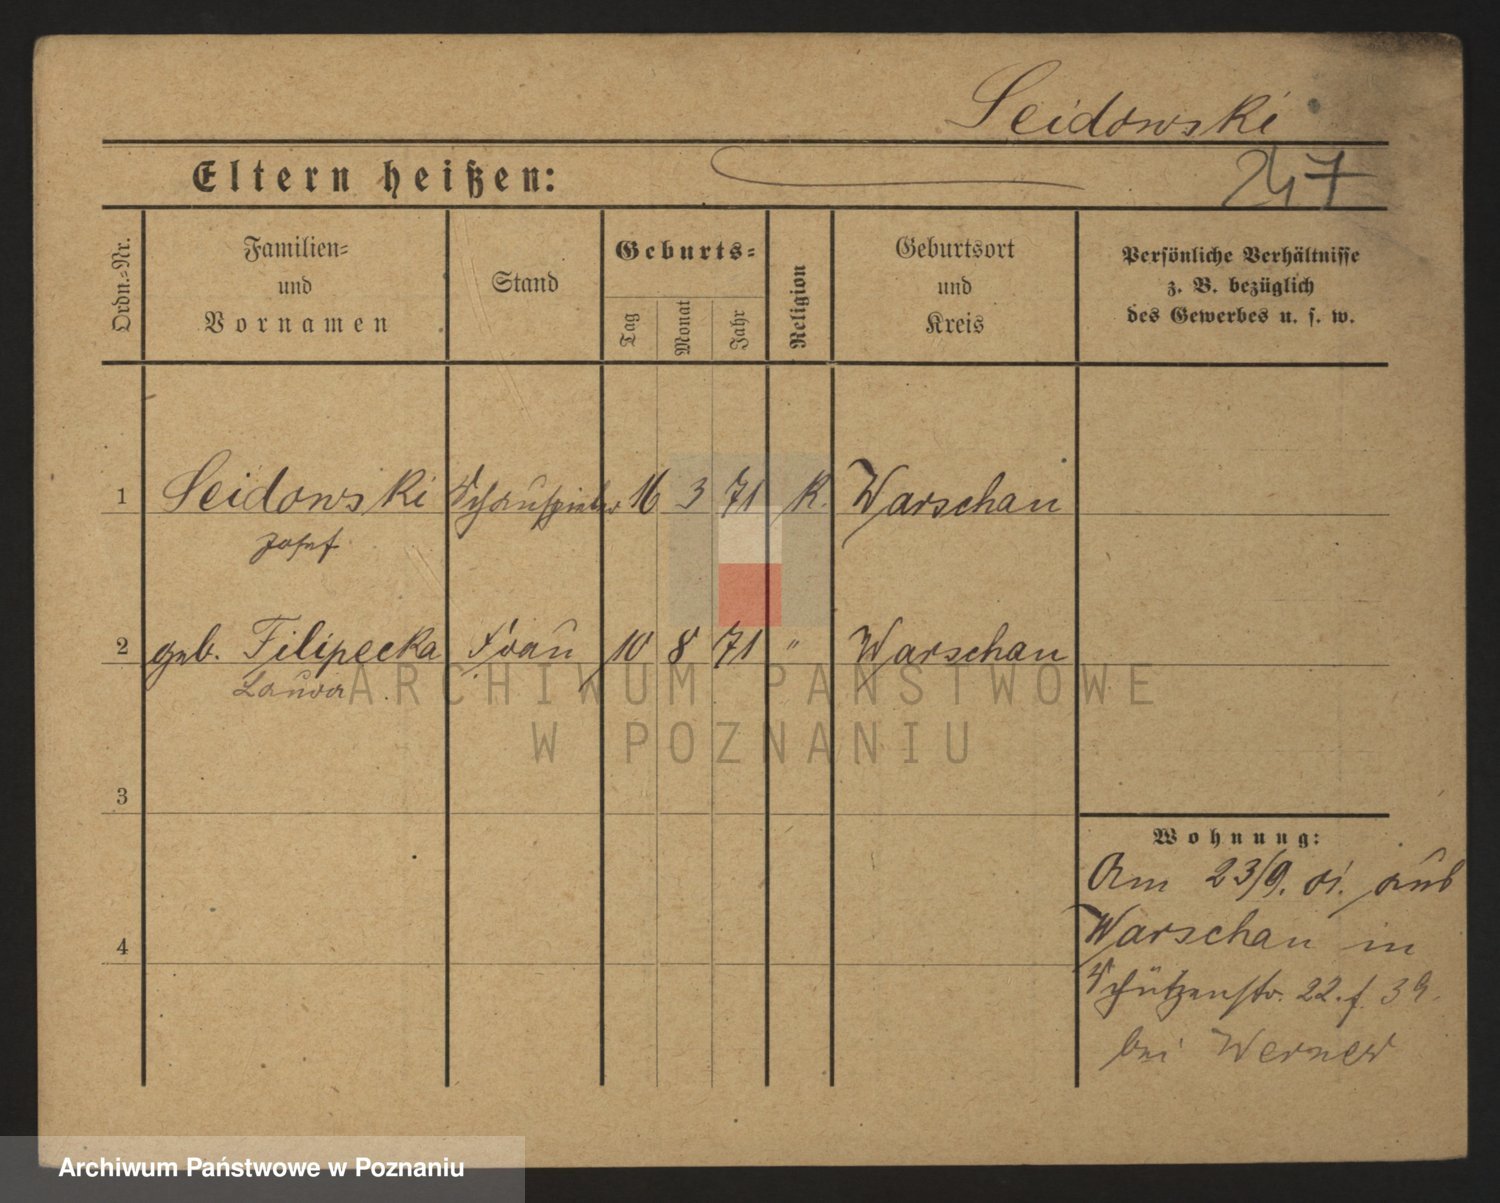 Seidowski
Eltern heißen:
247
Ordn.=Nr.
Familien=
und
Vornamen
Stand
Geburts=
Tag
Monat
Jahr
Religion
Geburtsort
und
Kreis
Persönliche Verhältnisse
z. B. bezüglich
des Gewerbes u. s. w.
1 Seidowski Schauspieler 16 3 71 K. Warschau
Josef
2 geb. Filipecka Frau 10 8 71 " Warschau
Laura
ARCHIWUM PAŃSTWOWE
W POZNANIU
3
Wohnung:
Am 23/9. 01. aus
4
Warschau in
Schützenstr. 22. f. 39.
bei Werner
Archiwum Państwowe w Poznaniu